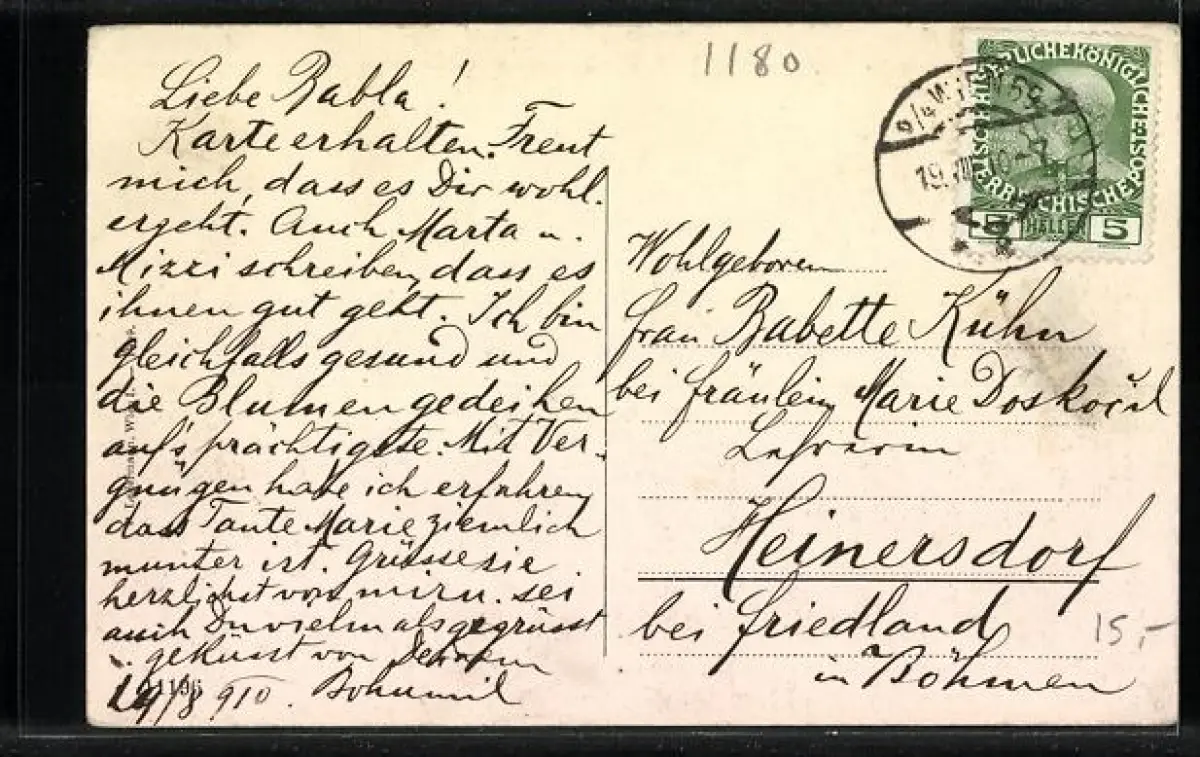 1180
Liebe Babla!
Karte erhalten. Freut
mich, dass es Dir wohl
ergeht. Auch Marta u.
Mizzi schreiben, dass es
ihnen gut geht. Ich bin
gleichfalls gesund und
die Blumen gedeihen
auf's prächtigste. Mit Ver-
gnügen habe ich erfahren
dass Tante Marie ziemlich
munter ist. Grüsse sie
herzlichst von mir u. sei
auch Du vielmals gegrüsst
u. geküsst von Deinem
Bohumil
19/8 910.
Wohlgeboren
Frau Babette Kühn
bei Fräulein Marie Doskočil
Lehrerin
Heinersdorf
bei Friedland
in Böhmen
15,-
WIEN
19. VIII. 10
KAISERLICHE KÖNIGLICHE ÖSTERREICHISCHE POST
5 HELLER 5